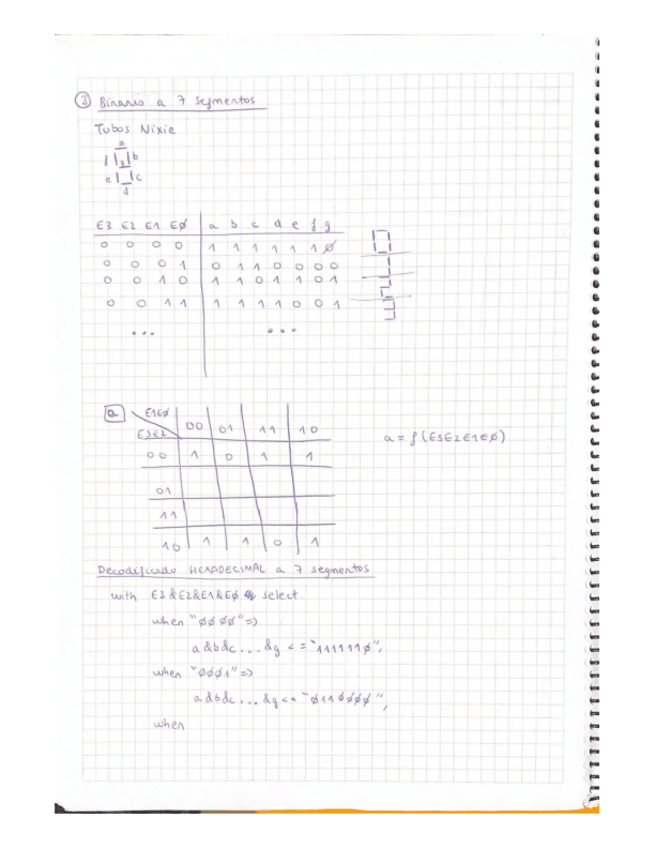 ③ Binario a 7 segmentos
Tubos Nixie
a
f g b
e c
d
E3 E2 E1 EØ a b c d e f g
0 0 0 0 1 1 1 1 1 1 Ø
0 0 0 1 0 1 1 0 0 0 0
0 0 1 0 1 1 0 1 1 0 1
0 0 1 1 1 1 1 1 0 0 1
... ...
a E1EØ 00 01 11 10
E3E2
a = f(E3E2E1EØ)
00 1 0 1 1
01
11
10 1 1 0 1
Decodificado HEXADECIMAL a 7 segmentos
with E3&E2&E1&EØ select
when "ØØØØ"=>
a&b&c...&g <= "111111Ø",
when "ØØØ1"=>
a&b&c...&g <= "Ø11ØØØØ",
when